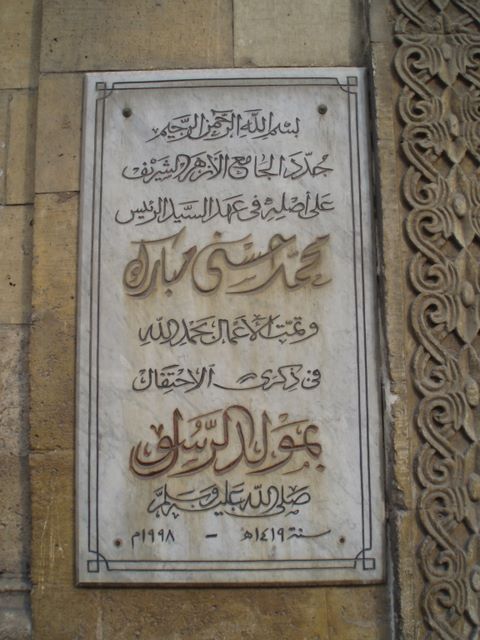 بسم الله الرحمن الرحيم
جدد الجامع الأزهر الشريف
على أصله في عهد السيد الرئيس
محمد حسني مبارك
وتمت الأعمال بحمد الله
في ذكرى الاحتفال
بمولد الرسول
صلى الله عليه وسلم
سنة ١٤١٩هـ - ١٩٩٨م